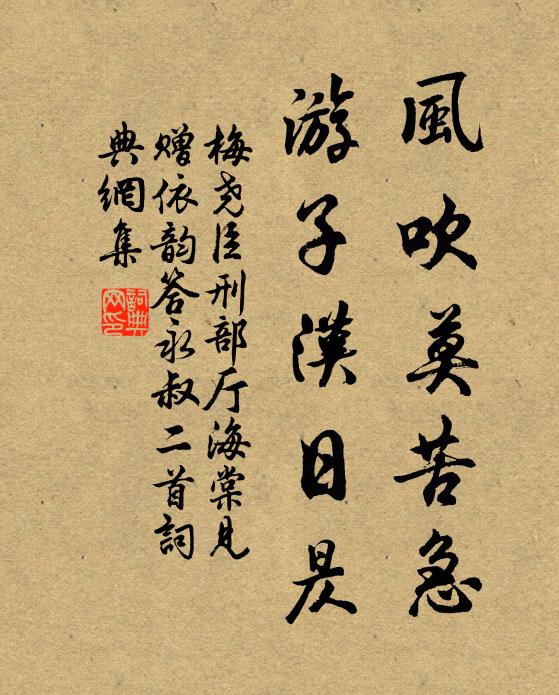 風吹莫苦急
游子漢日昃
梅尧臣刑部厅海棠見
赠依韵答永叔二首詞
典網集
詞典
网印